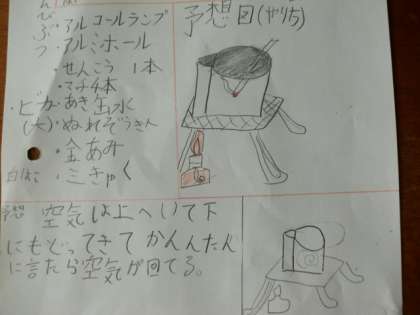 じゅんびぶつ
・アルコールランプ
・アルミホール
・せんこう 1本
・マッチ4本
・ビーカー
・あき缶 水
(大)・ぬれぞうきん
・金あみ
・三きゃく
予想図(やりち)
予想 空気は上へいて下
にもどってきてかんんたん
に言たら空気が回てる。